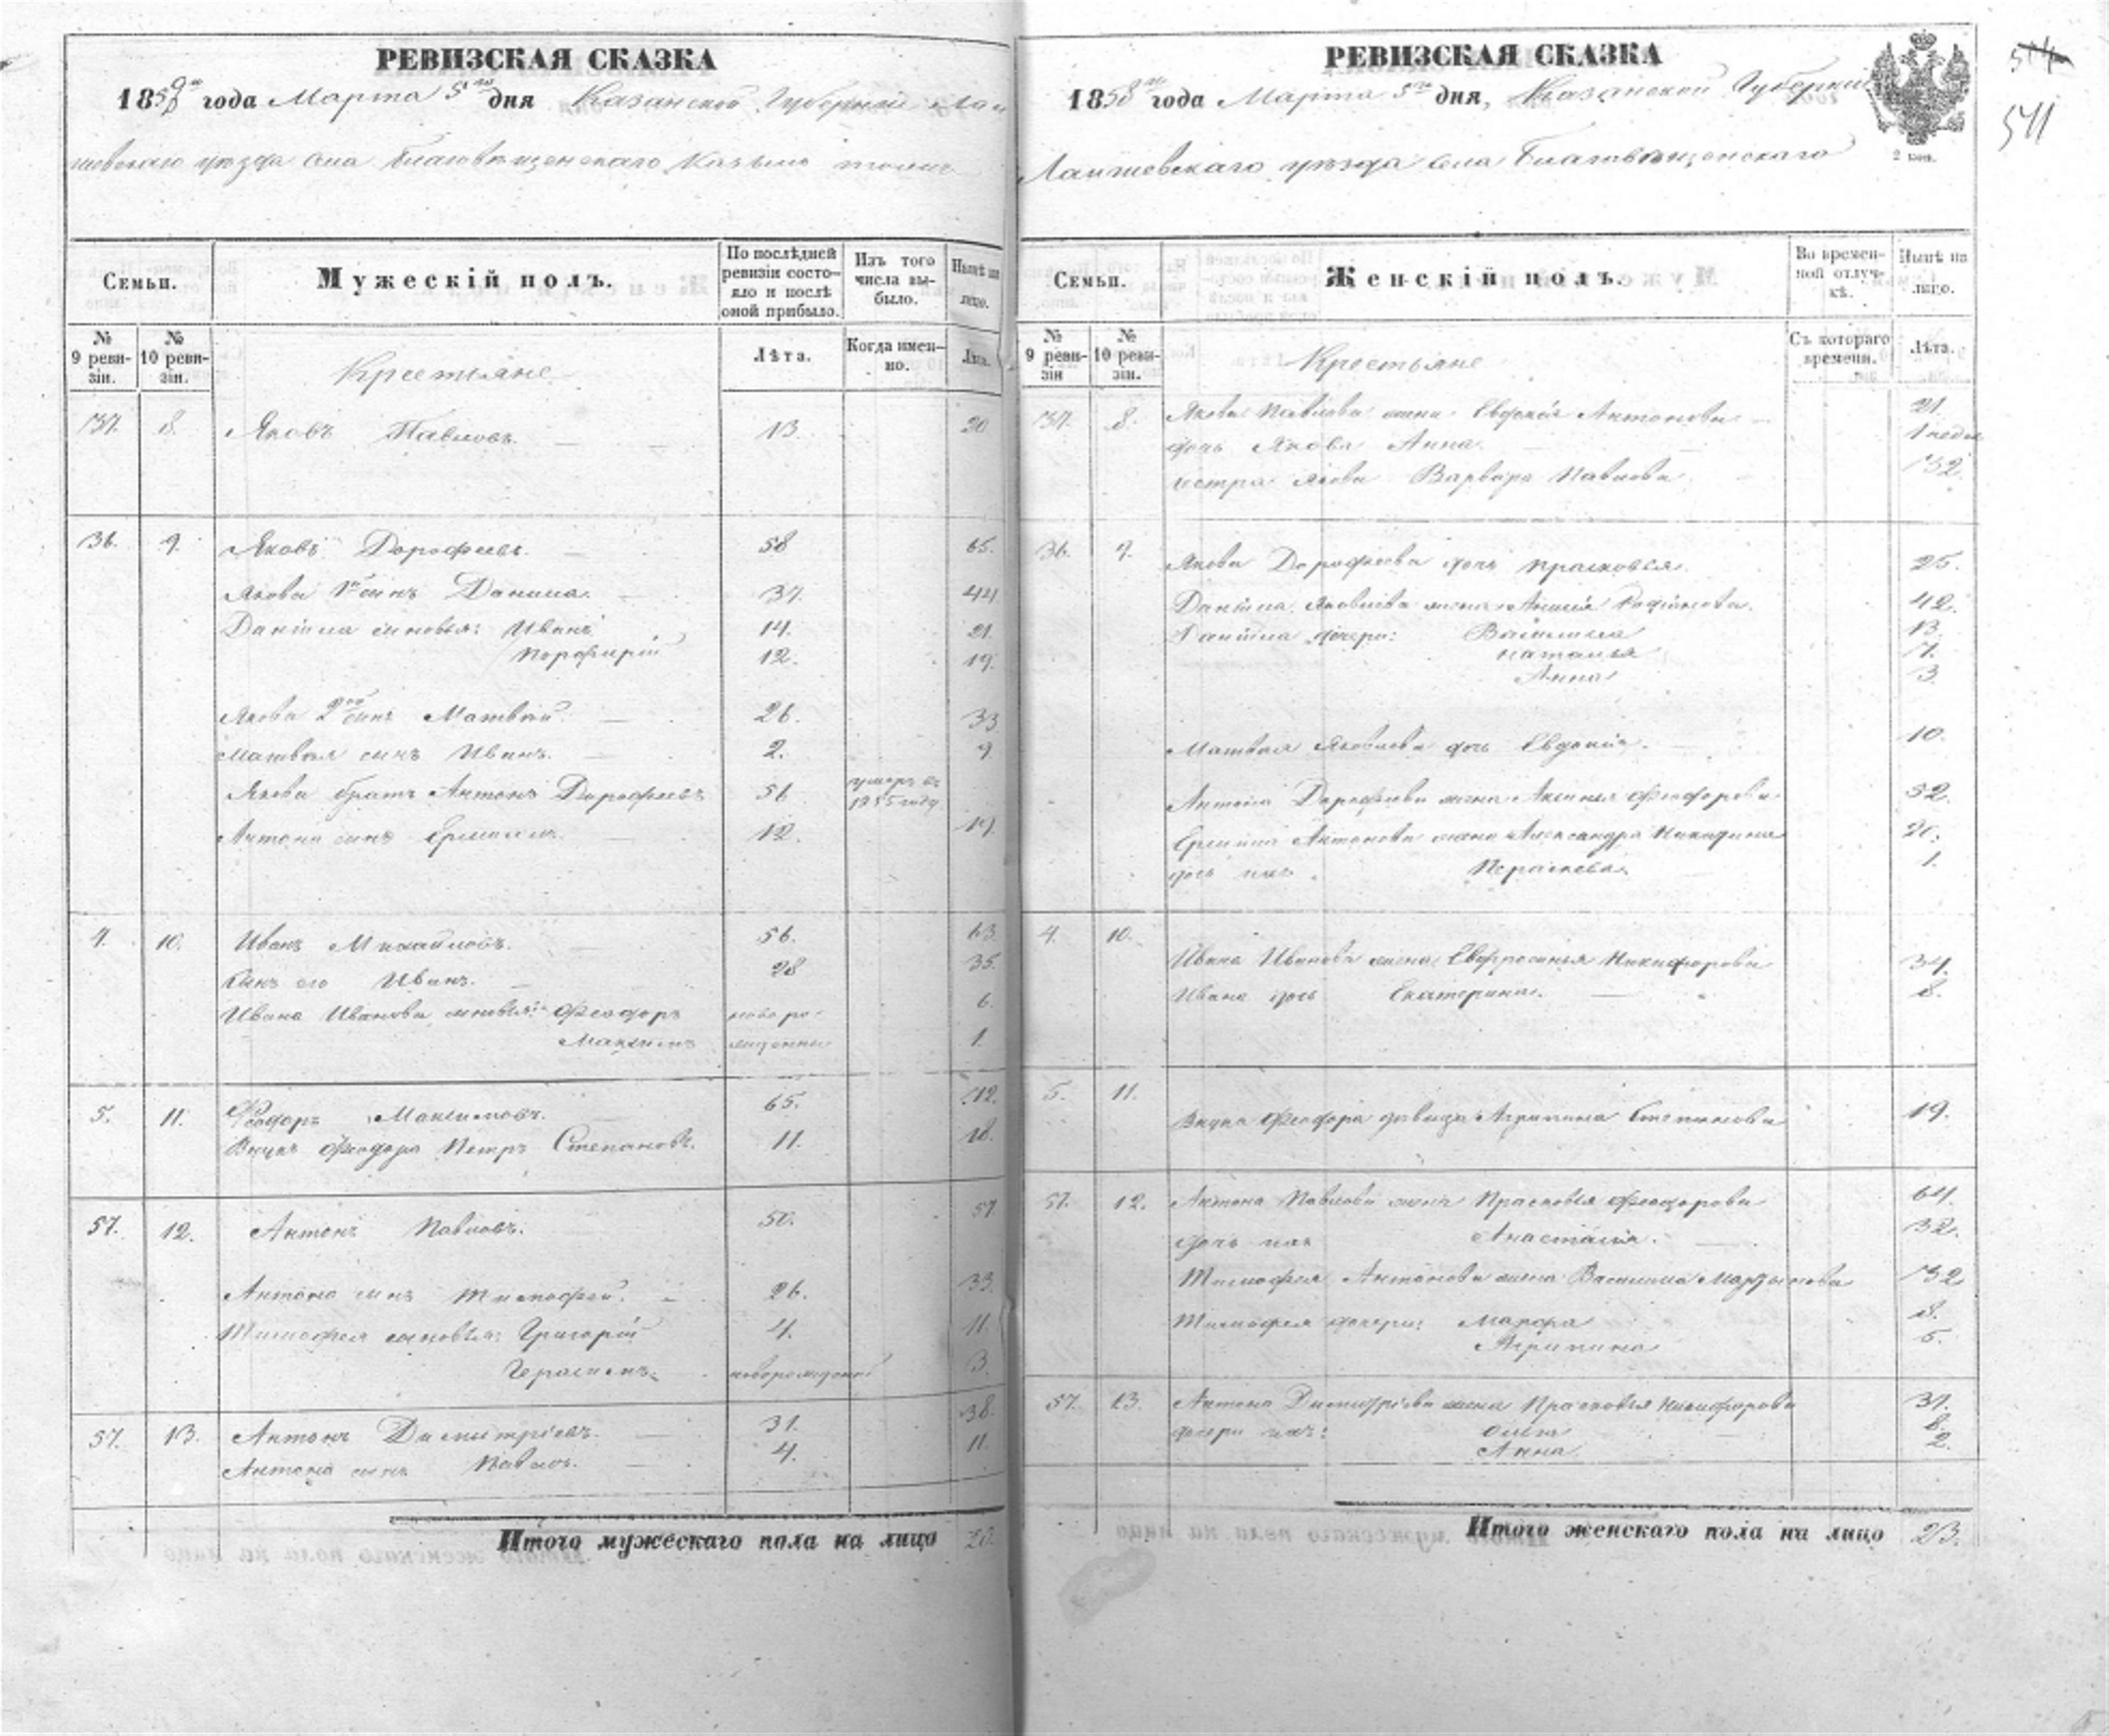 РЕВИЗСКАЯ СКАЗКА
1858 года Марта 5го дня Казанской Губернiи Лаи
шевскаго уѣзда села Благовѣщенскаго
Семьи.
Мужескiй полъ.
По послѣдней ревизiи состояло и послѣ оной прибыло.
Изъ того числа выбыло.
Нынѣ на лицо.
№ 9 ревизiи.
№ 10 ревизiи.
Крестьяне
Лѣта.
Когда именно.
Лѣта.
37. 8. Яковъ Павловъ. 13. 20
36. 9. Яковъ Дорофеевъ. 58 65.
Якова 1й сынъ Данила. 37. 44
Данiила сыновья: Иванъ 14. 21.
Порфирiй 12. 19.
Якова 2й сынъ Матвѣй. 26. 33
Матвѣя сынъ Иванъ. 2. 9
Якова братъ Антонъ Дорофеевъ 56 умеръ въ 1855 году
Антона сынъ Ермилъ 12. 19.
4. 10. Иванъ Михайловъ. 56. 63.
Сынъ его Иванъ. 28 35.
Ивана Иванова сыновья: Феодоръ новоро- 6.
Максимъ жденные 1.
5. 11. Феодоръ Максимовъ. 65. 72.
Внукъ Феодора Петръ Степановъ. 11. 18.
57. 12. Антонъ Павловъ. 50. 57
Антона сынъ Тимофей. 26. 33.
Тимофея сыновья: Григорiй 4. 11.
Герасимъ. новорожденный 3.
57. 13. Антонъ Димитрiевъ. 31. 38.
Антона сынъ Павелъ. 4. 11
Итого мужескаго пола на лицо 20.
РЕВИЗСКАЯ СКАЗКА
1858 года Марта 5го дня, Казанской Губернiи
Лаишевскаго уѣзда села Благовѣщенскаго
2 коп.
541
Семьи.
Женскiй полъ.
Во временной отлучкѣ.
Нынѣ на лицо.
№ 9 ревизiи
№ 10 ревизiи.
Крестьяне
Съ котораго времени.
Лѣта.
37. 8. Якова Павлова жена Евдокiя Антонова 21.
дочь Якова Анна.
сестра Якова Варвара Павлова 32.
36. 9. Якова Дорофеева дочь Прасковья. 25.
Данiила Яковлева жена 42.
Данiила дочери: Василиса 13.
Наталья 7.
Анна 3
Матвѣя Яковлева дочь Евдокiя. 10.
Антона Дорофеева жена Аксинья Феодорова 52.
Ермила Антонова жена Александра 20.
дочь ихъ Параскева. 1.
4. 10. Ивана Иванова жена Евфросинья Никифорова 34.
Ивана дочь Екатерина. 8.
5. 11. Внука Феодора дѣвица Агрипина Степанова 19.
57. 12. Антона Павлова жена Прасковья Феодорова 64.
дочь ихъ Анастасiя. 32.
Тимофея Антонова жена Василиса Мартынова 32
Тимофея дочери: Марфа 8.
Агрипина 5.
57. 13. Антона Димитрiева жена Прасковья Никифорова 37.
дочери ихъ: 8.
Анна 2.
Итого женскаго пола на лицо 23.